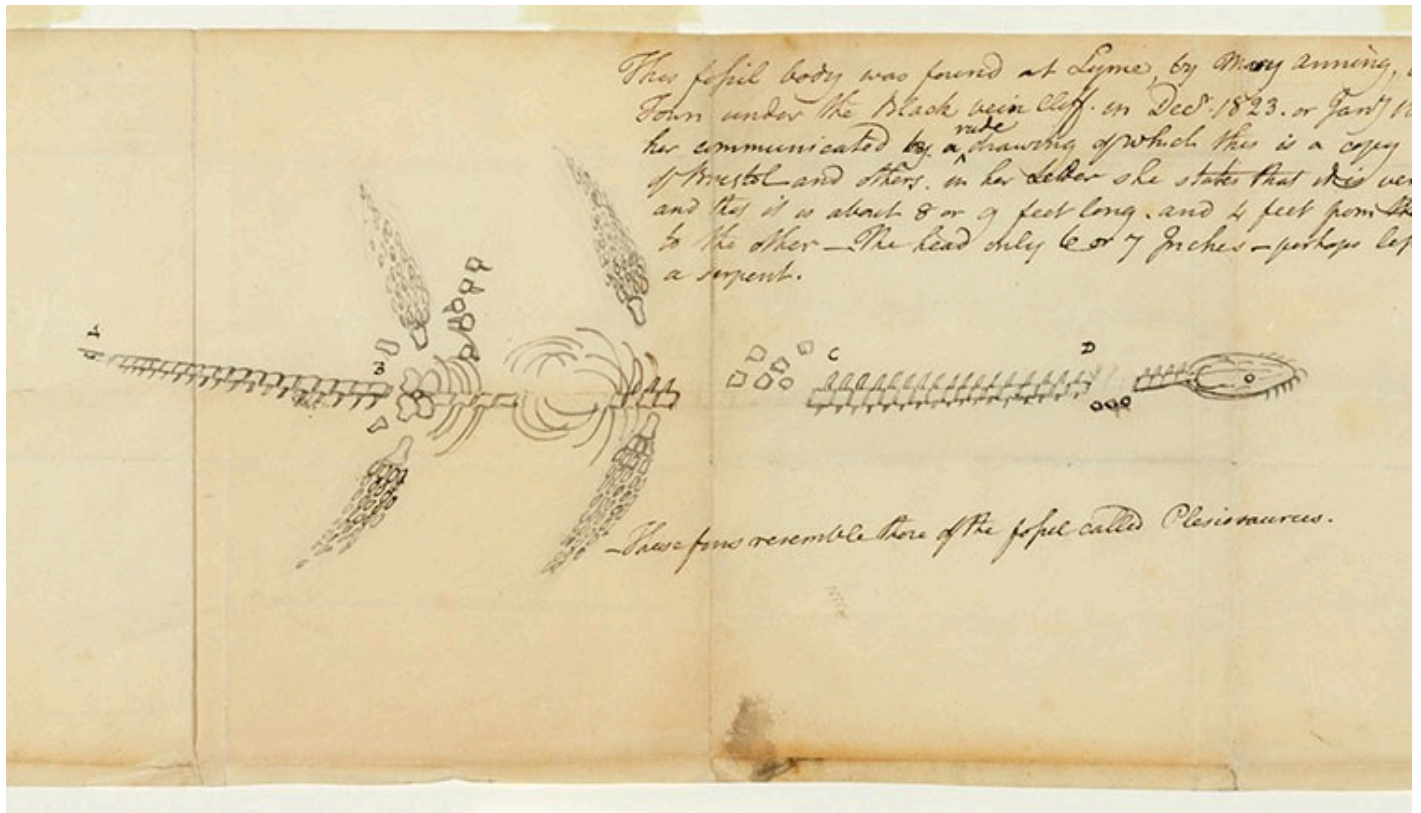 This fossil body was found at Lyme, by Mary Anning,
Town under the Black vein Cliff. in Decr. 1823. or Jany
her communicated by a rude drawing of which this is a copy
of Bristol and others. in her Letter she states that it is
and that it is about 8 or 9 feet long. and 4 feet from
to the other — The head only 6 or 7 Inches — perhaps
a serpent.
A
B
C
D
— These fins resemble those of the fossil called Plesiosaurus.